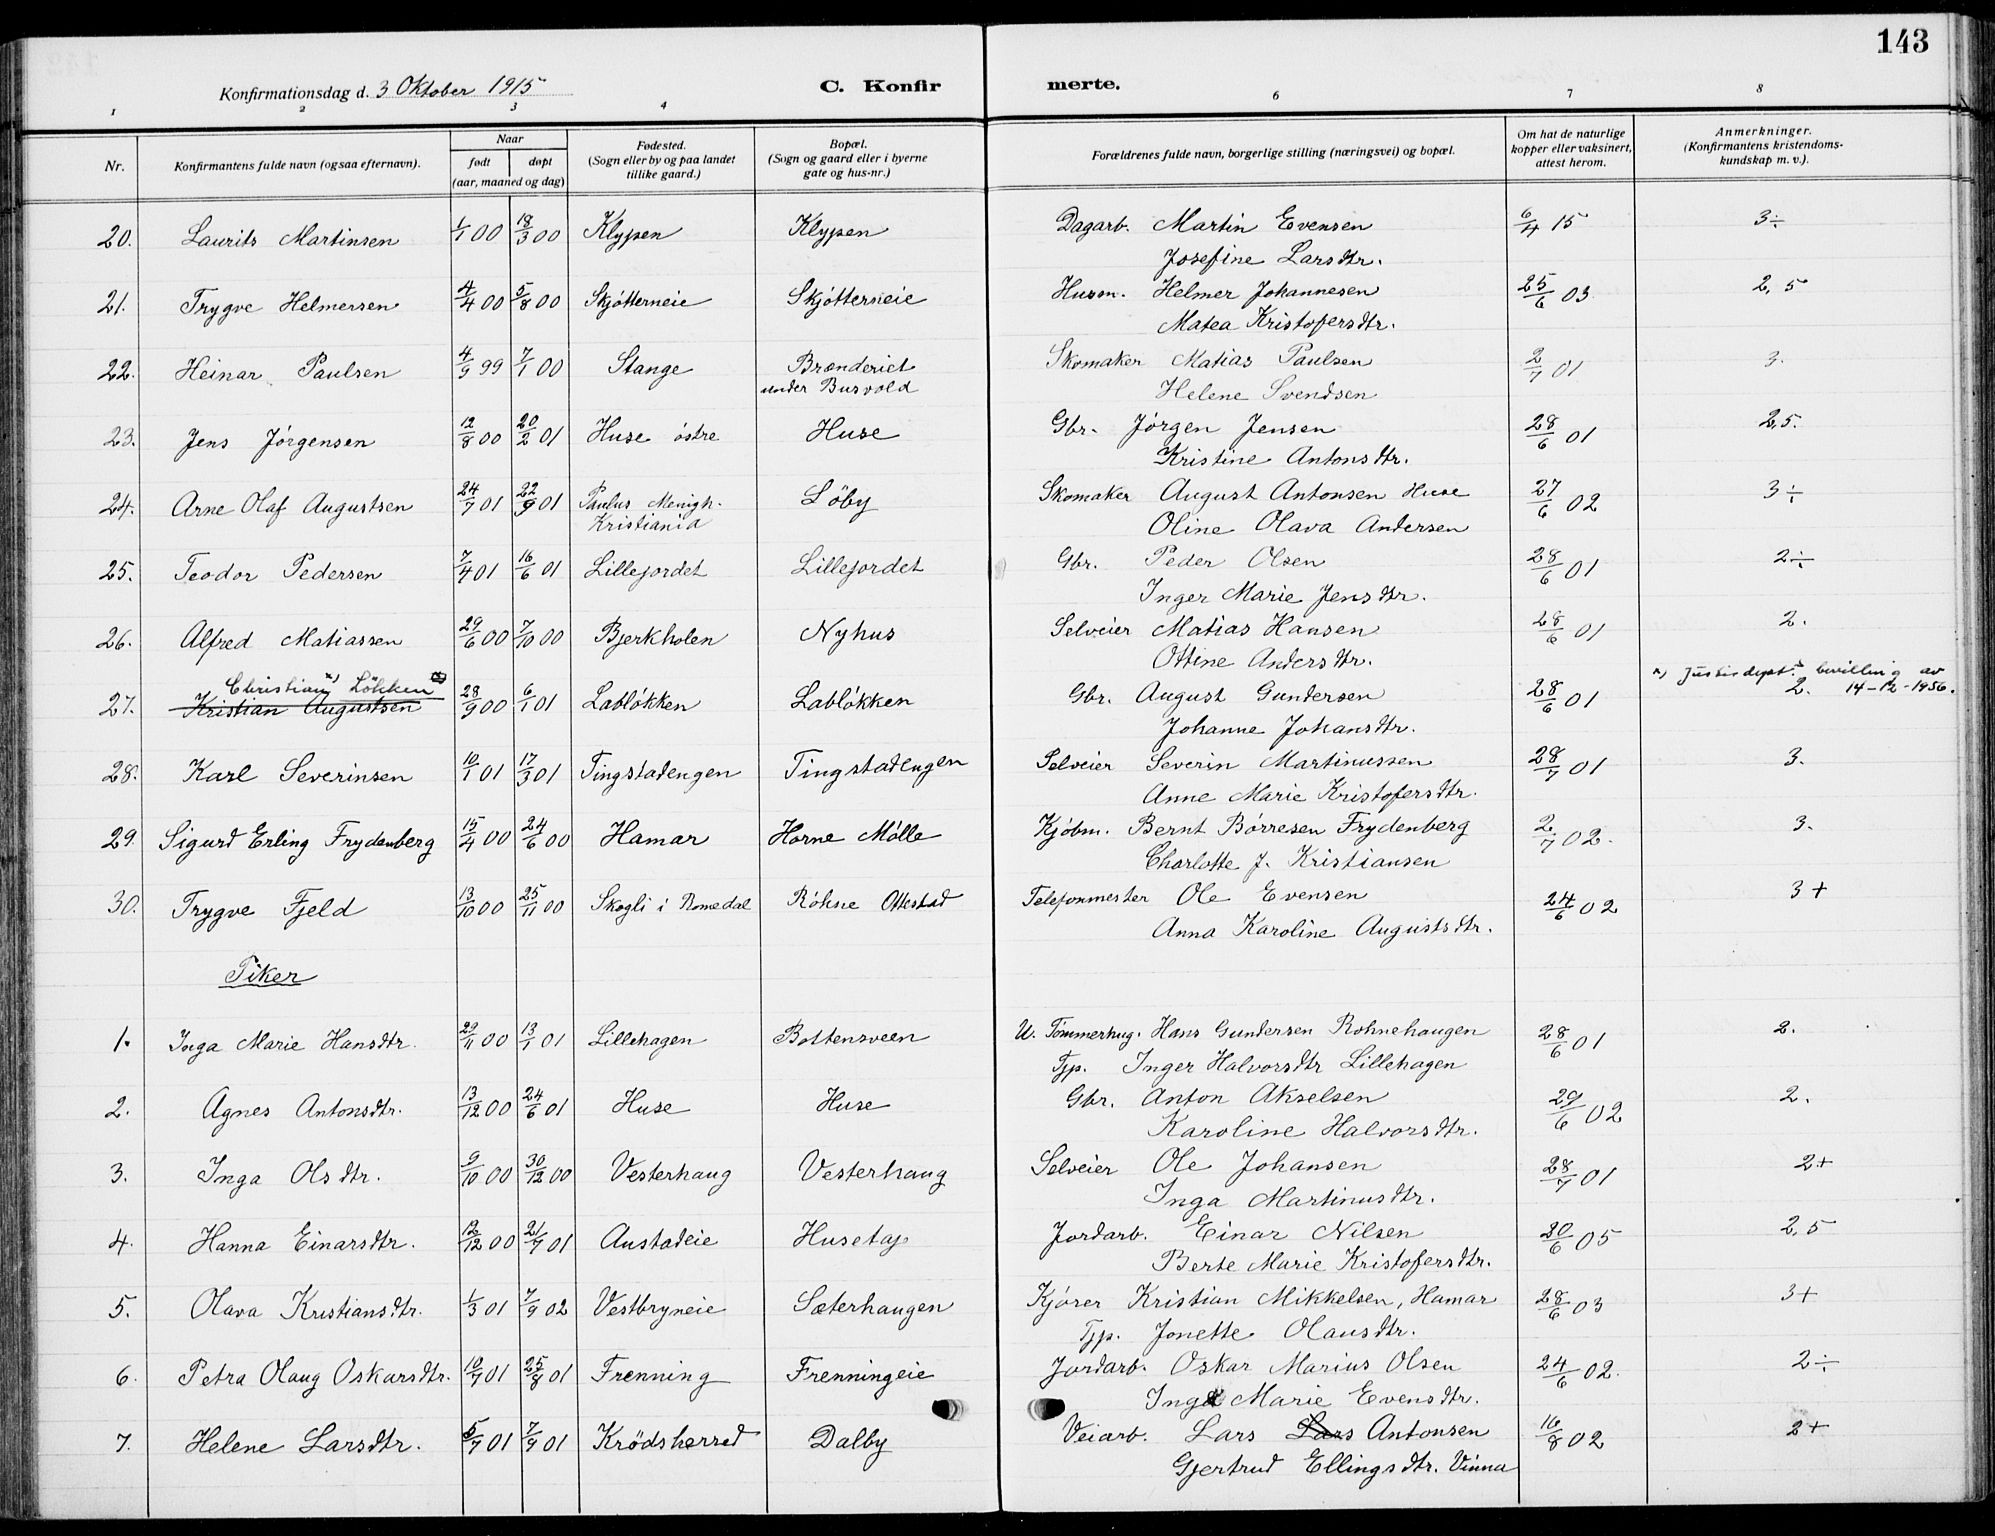 143
Konfirmationsdag d. 3 Oktober 1915
C. Konfir merte.
1 2 3 4 6 7 8
Nr. | Konfirmantens fulde navn (ogsaa efternavn). | Naar født døpt (aar, maaned og dag) | Fødested. (Sogn eller by og paa landet tillike gaard.) | Bopæl. (Sogn og gaard eller i byerne gate og hus-nr.) | Forældrenes fulde navn, borgerlige stilling (næringsvei) og bopæl. | Om hat de naturlige kopper eller vaksinert, attest herom. | Anmerkninger. (Konfirmantens kristendomskundskap m. v.).
20. Laurits Martinsen 1/1 00 18/3 00 Klypen Klypen Dagarb. Martin Evensen 6/4 15 3÷
Josefine Larsdtr.
21. Trygve Helmersen 4/4 00 5/8 00 Skjøtterneie Skjøtterneie Husm. Helmer Johannesen 25/6 03 2,5
Matea Kristofersdtr.
22. Heinar Paulsen 4/9 99 7/1 00 Stange Brænderiet Skomaker Matias Paulsen 2/7 01 3.
under Busvold Helene Svendsen
23. Jens Jørgensen 12/8 00 20/2 01 Huse østre Huse Gbr. Jørgen Jensen 28/6 01 2,5.
Kristine Antonsdtr.
24. Arne Olaf Augustsen 24/7 01 22/9 01 Paulus Menigh. Løby Skomaker August Antonsen Huse 27/6 02 3÷
Kristiania Oline Olava Andersen
25. Teodor Pedersen 7/4 01 16/6 01 Lillejordet Lillejordet Gbr. Peder Olsen 28/6 01 2÷
Inger Marie Jensdtr.
26. Alfred Matiassen 29/6 00 7/10 00 Bjerkholen Nyhus Selveier Matias Hansen 28/6 01 2.
Ottine Andersdtr.
Christian x) Løkken x) Justisdept.s bevilling av 14-12-1956.
27. Kristian Augustsen 28/9 00 6/1 01 Labløkken Labløkken Gbr. August Gundersen 28/6 01 2.
Johanne Johansdtr.
28. Karl Severinsen 10/1 01 17/3 01 Tingstadengen Tingstadengen Selveier Severin Martinussen 28/7 01 3.
Anne Marie Kristofersdtr.
29. Sigurd Erling Frydenberg 15/4 00 24/6 00 Hamar Horne Mølle Kjøbm. Bernt Børresen Frydenberg 2/7 02. 3.
Charlotte J. Kristiansen
30. Trygve Fjeld 13/10 00 25/11 00 Skogli i Romedal Røhne Ottestad Telefonmester Ole Evensen 24/6 02 3+
Anna Karoline Augustsdtr.
Piker
1. Inga Marie Hansdtr. 29/11 00 13/1 01 Lillehagen Bottensveen U. Tømmerhug. Hans Gundersen Rohnehaugen 28/6 01 2.
Tjp. Inger Halvorsdtr Lillehagen
2. Agnes Antonsdtr. 13/12 00 24/6 01 Huse Huse Gbr. Anton Akselsen 29/6 02 2.
Karoline Halvorsdtr.
3. Inga Olsdtr. 9/10 00 30/12 00 Vesterhaug Vesterhaug Selveier Ole Johansen 28/7 01 2+
Inga Martinusdtr.
4. Hanna Einarsdtr. 12/12 00 21/7 01 Austadeie Jordarb. Einar Nilsen 30/6 05 2,5
Berte Marie Kristofersdtr.
5. Olava Kristiansdtr. 1/3 01 7/9 02 Vestbryneie Sæterhaugen Kjører Kristian Mikkelsen, Hamar 28/6 03 3+
Tjp. Jonette Olausdtr.
6. Petra Olaug Oskarsdtr. 10/7 01 25/8 01 Frenning Frenningeie Jordarb. Oskar Marius Olsen 24/6 02. 2÷
Inga Marie Evensdtr.
7. Helene Larsdtr. 5/7 01 7/9 01 Krödsherred Dalby Veiarb. Lars Lars Antonsen 16/8 02 2+
Gjertrud Ellingsdtr. Vinna